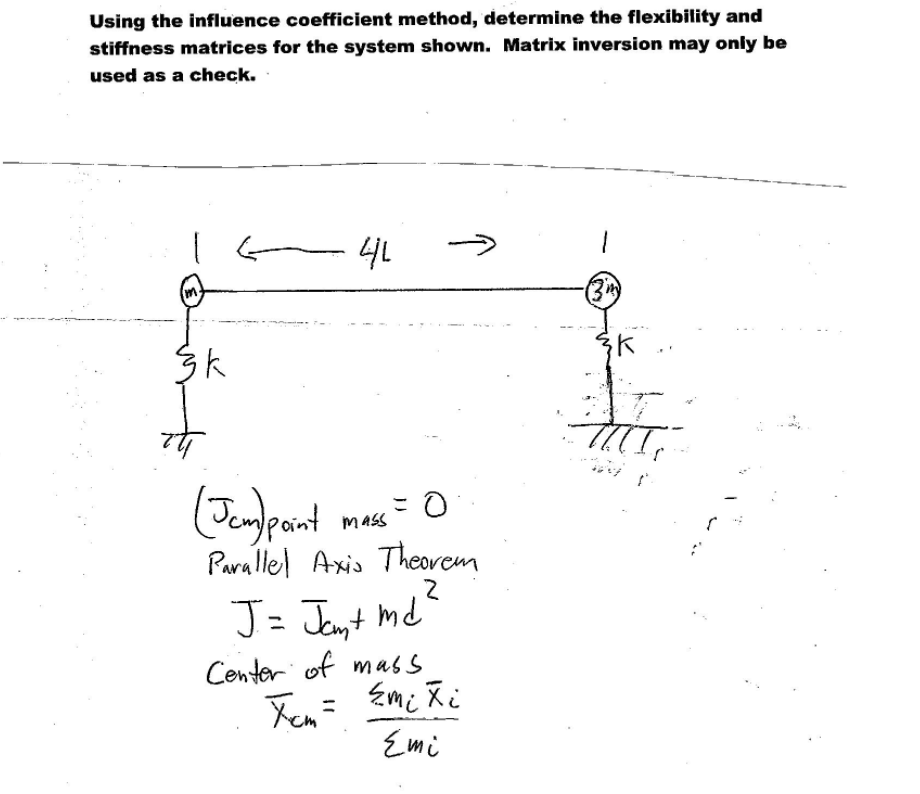 Using the influence coefficient method, determine the flexibility and
stiffness matrices for the system shown. Matrix inversion may only be
used as a check.
4L
m
3m
k
K
(Jcm)point mass = 0
Parallel Axis Theorem
J = Jcm + md²
Center of mass
X̄cm = Σmi x̄i
Σmi